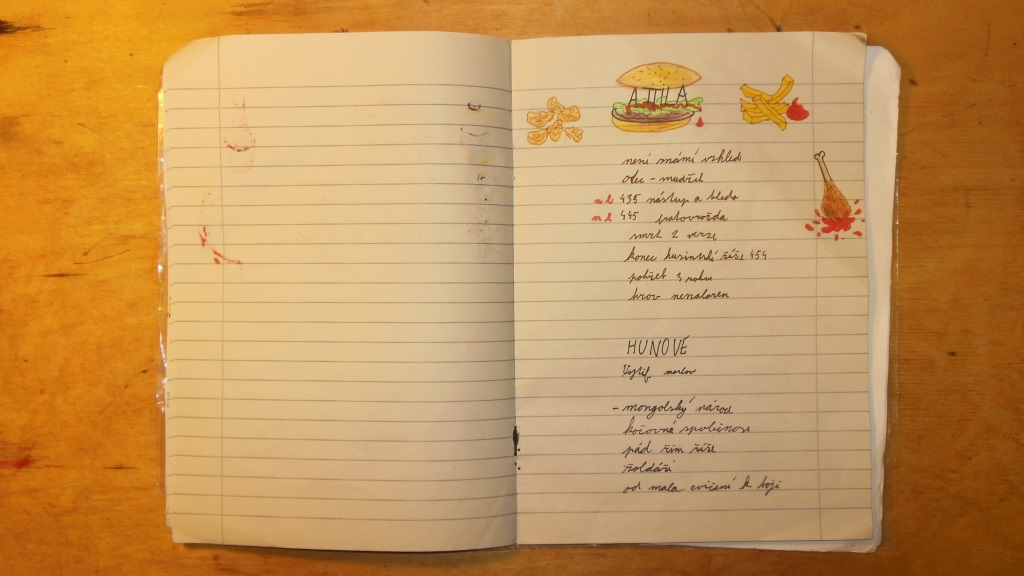 ATILA
není známí vzhled
otec - mudžuk
435 nástup a bleda
445 bratovražda
smrt 2 verze
konec hunské říše 454
pohřeb 3 rakve
hrov nenalezen
HUNOVÉ
- mongolský národ
kočovná společnost
pád řím říše
žoldáři
od mala cvičení k boji